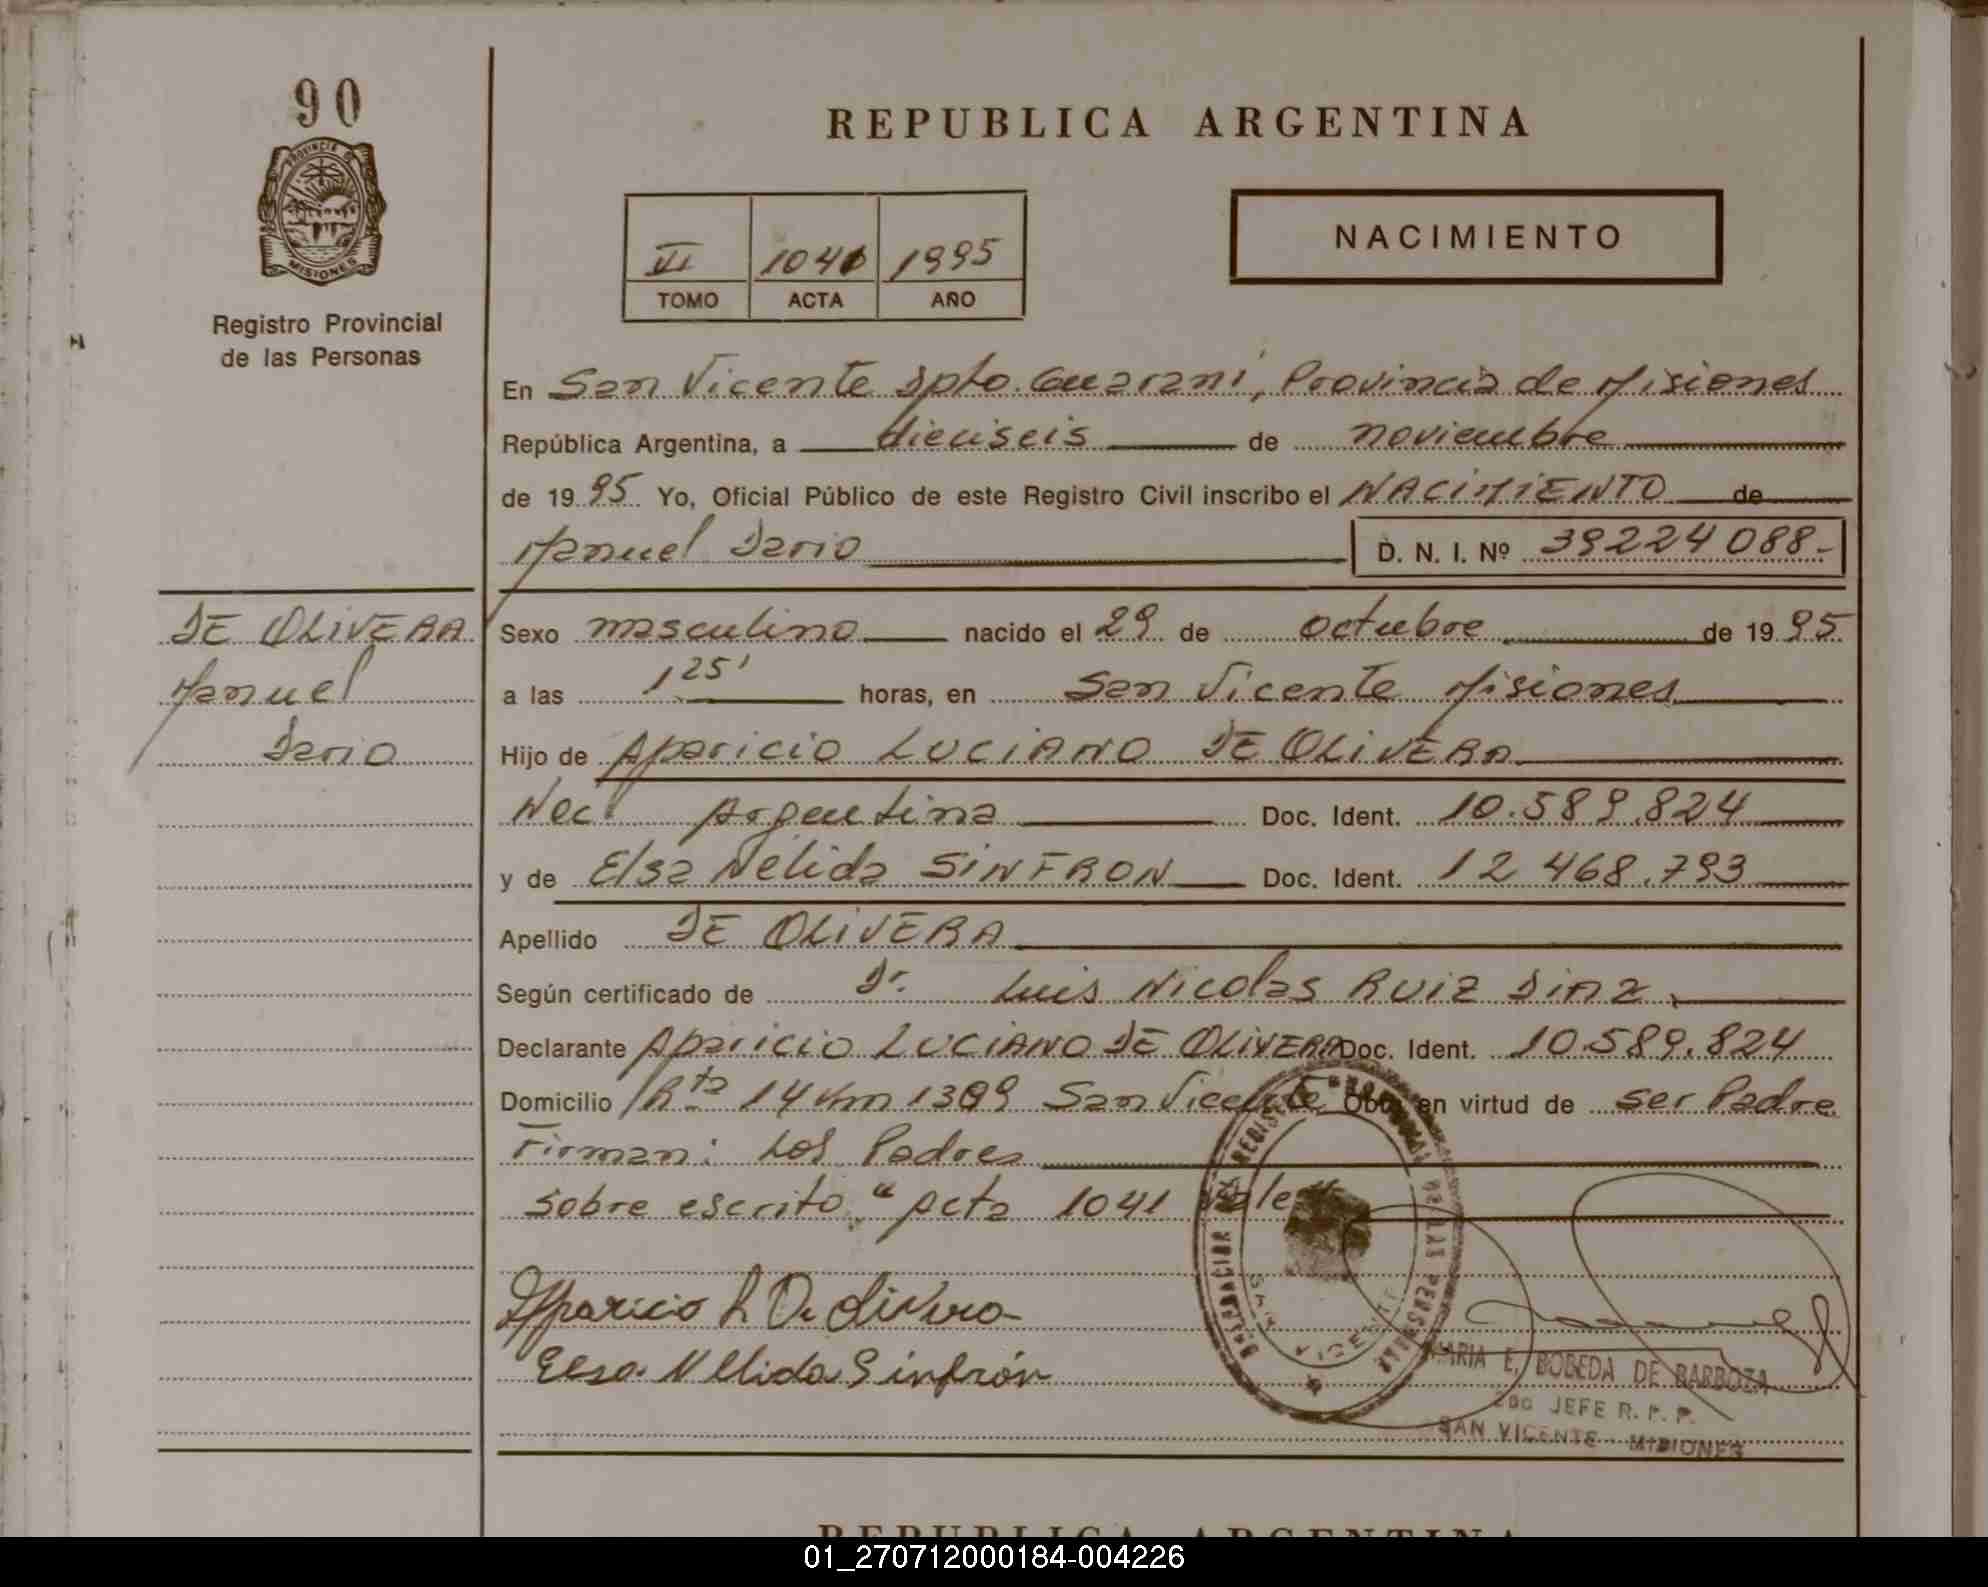 90
PROVINCIA DE
MISIONES
Registro Provincial
de las Personas
REPUBLICA ARGENTINA
NACIMIENTO
VI 1041 1995
TOMO ACTA AÑO
En San Vicente Dpto. Guaraní, Provincia de Misiones
República Argentina, a dieciseis de noviembre
de 1995 Yo, Oficial Público de este Registro Civil inscribo el NACIMIENTO de
Manuel Dario D. N. I. Nº 39224088.-
DE OLIVERA
Manuel
Dario
Sexo masculino nacido el 29 de octubre de 1995
a las 1 25' horas, en San Vicente Misiones
Hijo de Aparicio LUCIANO DE OLIVERA
Nac. Argentina Doc. Ident. 10.589.824
y de Elsa Nelida SINFRON Doc. Ident. 12 468.793
Apellido DE OLIVERA
Según certificado de Dr. Luis Nicolas RUIZ DIAZ
Declarante Aparicio LUCIANO DE OLIVERA Doc. Ident. 10.589.824
Domicilio Rta 14 Km 1309 San Vicente Obra en virtud de ser Padre
Firman: Los Padres
Sobre escrito "Acta 1041 Vale"
Aparicio L De Olivera
Elsa Nelida Sinfrón
DELEGACION REGISTRO PROVINCIAL DE LAS PERSONAS
SAN VICENTE
MARIA E. BOBEDA DE BARBOZA
2do JEFE R. P. P.
SAN VICENTE - MISIONES
REPUBLICA ARGENTINA
01_270712000184-004226